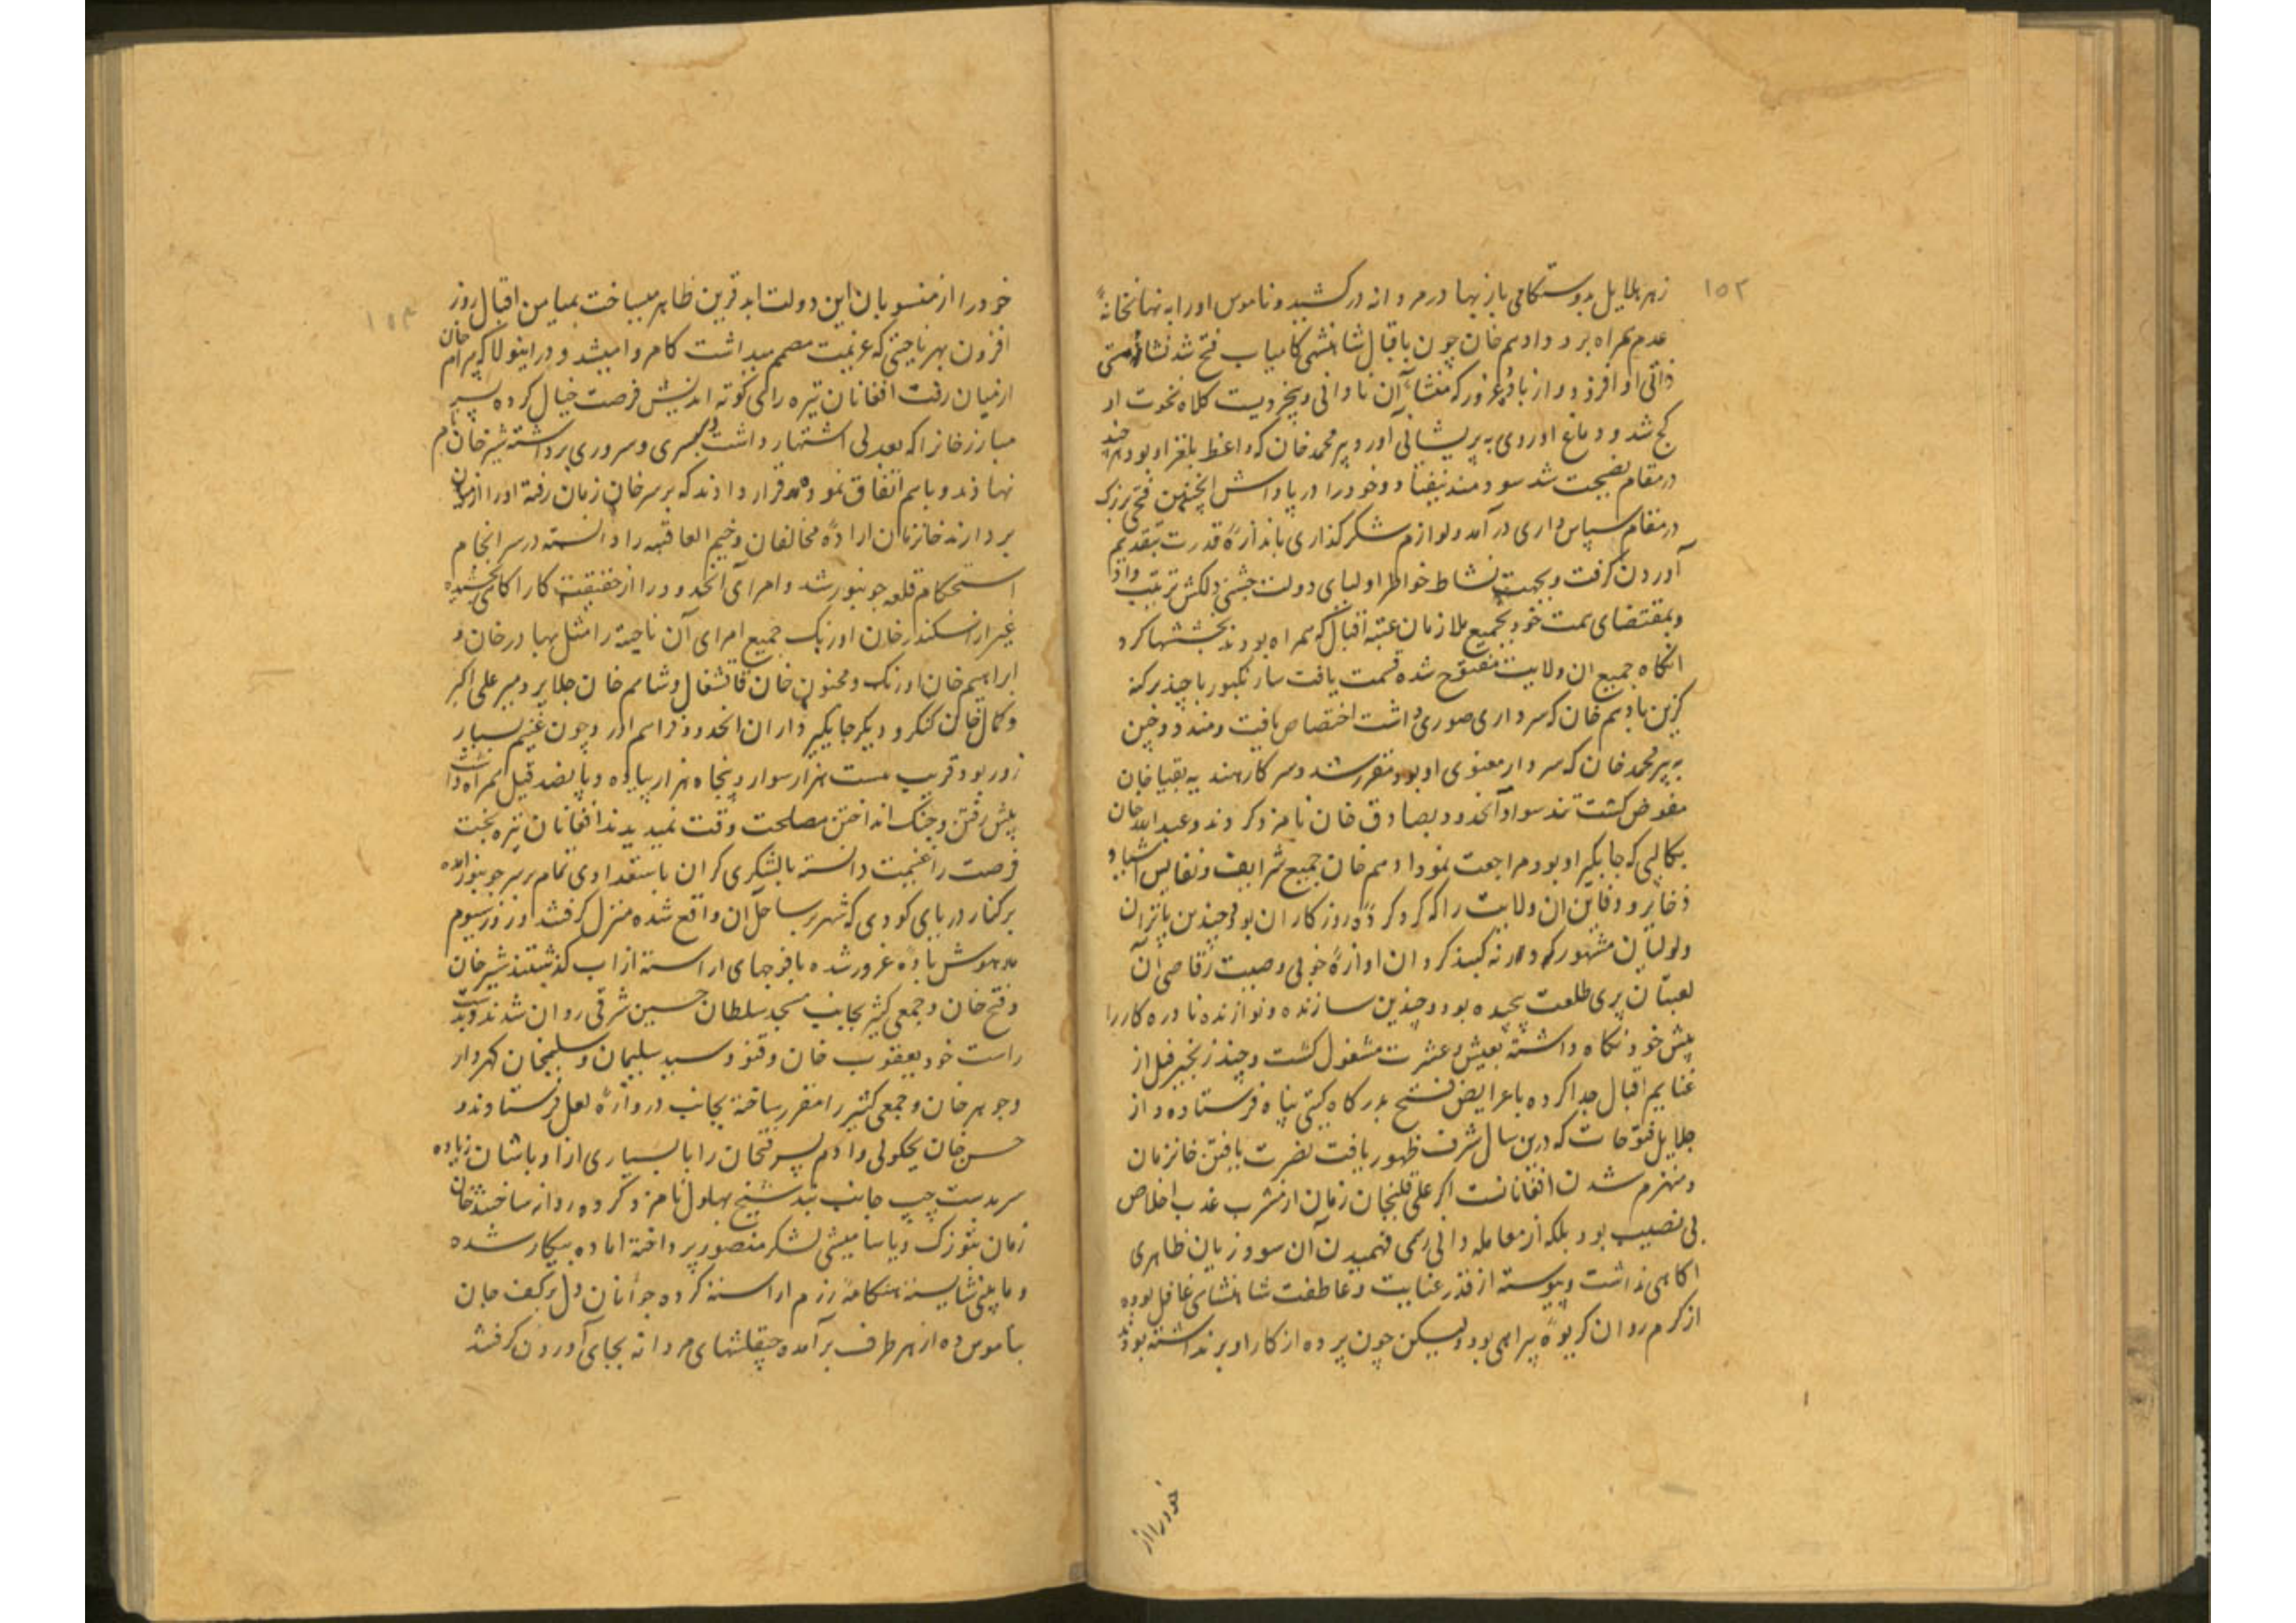 ١٥٣
زهر هلاهل بدوستکامی بازبها در مردانه درکشید و ناموس او را به نهانخانهٔ
عدم همراه برد و ادهم خان چون باقبال شاهنشهی کامیاب فتح شد نشاء مستی
ذاتی او افزود و از بادهٔ غرور که منشاء آن نادانی و بیخردیست کلاه نخوت او
کج شد و دماغ او روی به پریشانی آورد پیر محمد خان که واعظ بلغز او بود هرچند
در مقام نصیحت شد سودمند نیفتاد و خود را در پاداش اینچنین فتحی بزرگ
در مقام سپاس داری در آمد و لوازم شکرگذاری باندازهٔ قدرت بتقدیم
آوردن گرفت و بجهت نشاط خواطر اولیای دولت جشنی دلکش ترتیب داد
و بمقتضای همت خود بجمیع ملازمان عتبه اقبال که همراه بودند بخششها کرد
انگاه جمیع ان ولایت مفتوح شده قسمت یافت سارنکپور با چند پرکنه
گزین بادهم خان که سرداری صوری داشت اختصاص یافت و مندو و اجین
به پیر محمد خان که سردار معنوی او بود مقرر شد و سرکار هندیه بقیا خان
مفوض کشت مندسور و آنحدود بصادق خان نامزد کردند و عبدالله خان
بکالپی که جایگیر او بود مراجعت نمود ادهم خان جمیع شرایف و نفایس اشیا و
ذخایر و دفاین ان ولایت را که کرد کردهٔ روزگاران بود و چندین پاتران
و لولیان مشهور که در نه گنبد کردان اوازهٔ خوبی وصیت رقاصی آن
لعبتان پری طلعت پیچیده بود و چندین سازنده و نوازنده نادره کار را
پیش خود نگاه داشته بعیش و عشرت مشغول گشت و چند زنجیر فیل از
غنایم اقبال جدا کرده با عرایض فتح بدرگاه گیتی پناه فرستاده و از
جلایل فتوحات که درین سال شرف ظهور یافت نصرت یافتن خانزمان
و منهزم شدن افغانانست اگر علی قلیخان زمان از مشرب عذب اخلاص
بی نصیب بود بلکه از معامله دانی رسمی فهمیدن آن سود و زیان ظاهری
اکاهی نداشت و پیوسته از قدر عنایت و عاطفت شاهنشاهی غافل بوده
از گرم روان کریوهٔ بیراهی بود و لیکن چون پرده از کار او برنداشته بودند
خود را از
١٥٤
خود را از منسوبان این دولت ابد قرین ظاهر میساخت بمیامن اقبال روز
افزون بهر ناحیتی که عزیمت مصمم میداشت کامروا میشد و دراینولا که بیرام خان
از میان رفت افغانان تیره رای کوته اندیش فرصت خیال کرده پسر
مبارز خانرا که بعدلی اشتهار داشت بمهتری و سروری برداشته شیر خان نام
نهادند و باهم اتفاق نموده قرار دادند که بر سر خان زمان رفته او را از میان
بردارند خانزمان ارادهٔ مخالفان وخیم العاقبه را دانسته در سرانجام
استحکام قلعه جونپور شد و امرای آنحدود را از حقیقت کار اکاهی بخشیده
غیر از اسکندر خان اوزبک جمیع امرای آن ناحیه را مثل بهادر خان و
ابراهیم خان اوزبک و مجنون خان قاقشال و شاهم خان جلایر و میر علی اکبر
و کمال خان ککر و دیکر جایگیر داران انحدود فراهم اورد و چون غنیم بسیار
زور بود قریب بیست هزار سوار و پنجاه هزار پیاده و پانصد فیل همراه داشت
پیش رفتن و جنک انداختن مصلحت وقت ندیدند افغانان تیره بخت
فرصت را غنیمت دانسته با لشکری گران باستعدادی تمام بر سر جونپور آمده
بر کنار دریای کودی که شهر بر ساحل آن واقع شده منزل گرفتند و روز سیوم
مدهوش بادهٔ غرور شده با فوجهای اراسته از اب گذشتند شیر خان
و فتح خان و جمعی کثیر بجانب مسجد سلطان حسین شرقی روان شدند و بدست
راست خود یعقوب خان و فتو و سید سلیمان و سلیمخان کهروار
و جوهر خان و جمعی کثیر را مقرر ساخته بجانب دروازهٔ لعل فرستادند و
حسن خان بچکوتی و ادم پسر فتحخان را با بسیاری از اوباشان زیاده
سر بدست چپ جانب بند شیخ بهلول نامزد کرده روانه ساختند خان
زمان بتوزک و یاسامیشی لشکر منصور پرداخته اماده پیکار شده
و مابینی شایسته هنگامهٔ رزم اراسته کرده جوانان دل بر کف جان
بناموس ده از هر طرف برآمده چپقلشهای مردانه بجای آوردن گرفتند